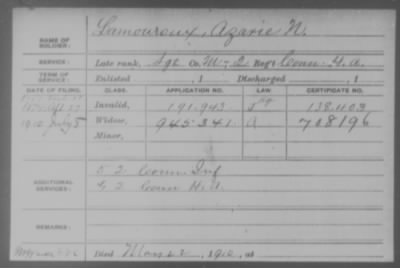 NAME OF SOLDIER: Lamoureux, Azarie N.
SERVICE: Late rank, Sgt Co. M - 2 Reg't Conn H.A.
TERM OF SERVICE: Enlisted , 1 Discharged , 1
DATE OF FILING. CLASS. APPLICATION NO. LAW CERTIFICATE NO.
Invalid, 191.943 138.403
1910 July 5 Widow, 945.341. 708196
Minor,
ADDITIONAL SERVICES: 52 Conn Inf
Conn H.A
REMARKS:
Died 1910, at